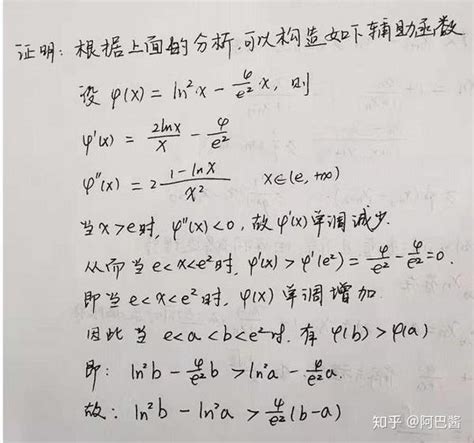 证明：根据上面的分析，可以构造如下辅助函数
设 φ(x) = ln²x - 4/e² x，则
φ'(x) = 2lnx/x - 4/e²
φ''(x) = 2 (1-lnx)/x²  x∈(e, +∞)
当x>e时，φ''(x)<0，故φ'(x)单调减少.
从而当e<x<e²时，φ'(x)>φ'(e²)=4/e²-4/e²=0.
即当e<x<e²时，φ(x)单调增加.
因此当 e<a<b<e²时，有 φ(b)>φ(a)
即：ln²b - 4/e² b > ln²a - 4/e² a.
故：ln²b - ln²a > 4/e² (b-a)
知乎 @阿巴酱